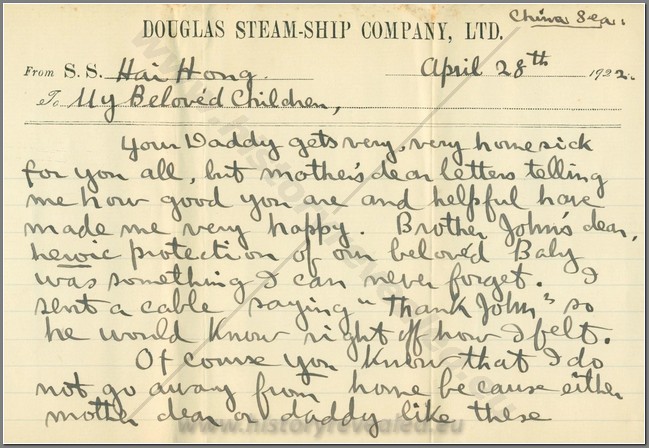 China Sea.
DOUGLAS STEAM-SHIP COMPANY, LTD.
From S. S. Hai Hong. April 28th 1922.
To My Beloved Children,
Your Daddy gets very, very homesick
for you all, but mother's dear letters telling
me how good you are and helpful have
made me very happy. Brother John's dear,
heroic protection of our beloved Baby
was something I can never forget. I
sent a cable saying "Thank John," so
he would know right off how I felt.
Of course you know that I do
not go away from home because either
mother dear or daddy like these
www.historyrevealed.eu
www.historyrevealed.eu